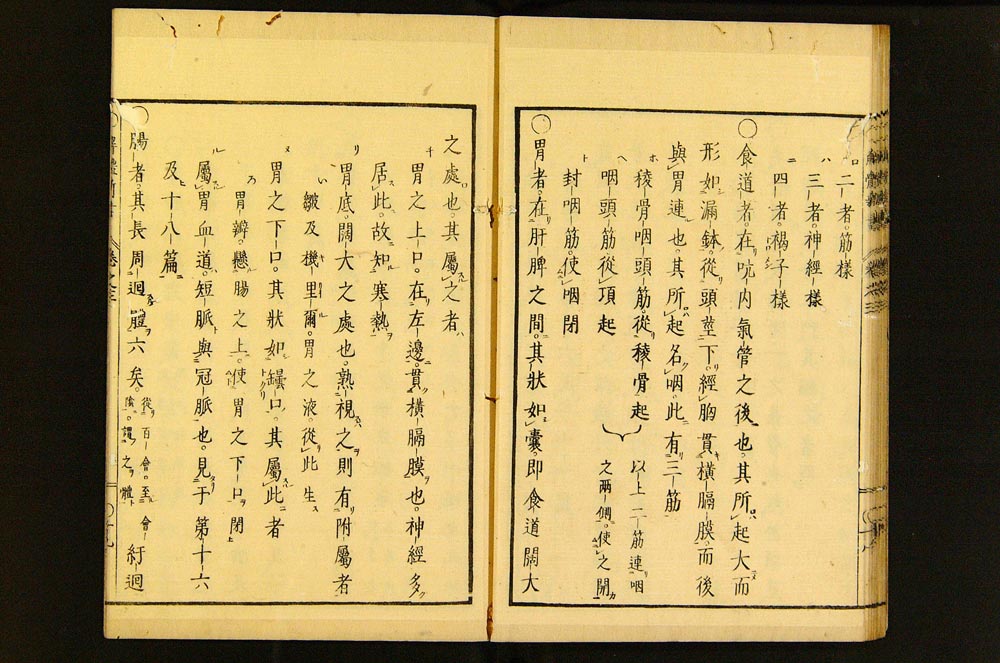 二者。筋樣
三者。神經樣
四者。襔子樣
○食道者。在吭內氣管之後也。其所起大而
形如漏鉢。從頭莖下。經胸貫橫膈膜。而後
與胃連也。其所起名咽。此有三筋
稜骨咽頭筋。從稜骨起
咽頭筋從頂起
以上二筋連咽
之兩側。使之開
封咽筋。使咽閉
○胃者。在肝脾之間。其狀如囊。卽食道闊大
之處也。其屬之者
胃之上口。在左邊。貫橫膈膜也。神經多
居此。故知寒熱
胃底。闊大之處也。熟視之則有附屬者
皺及機里爾。胃之液從此生
胃之下口。其狀如罎口。其屬此者
胃瓣。戀腸之上。使胃之下口閉
屬胃血道。短脈與冠脈也。見于第十六
及十八篇
○腸者。其長周迴體六矣。從百會。至會陰。謂之體 紆迴